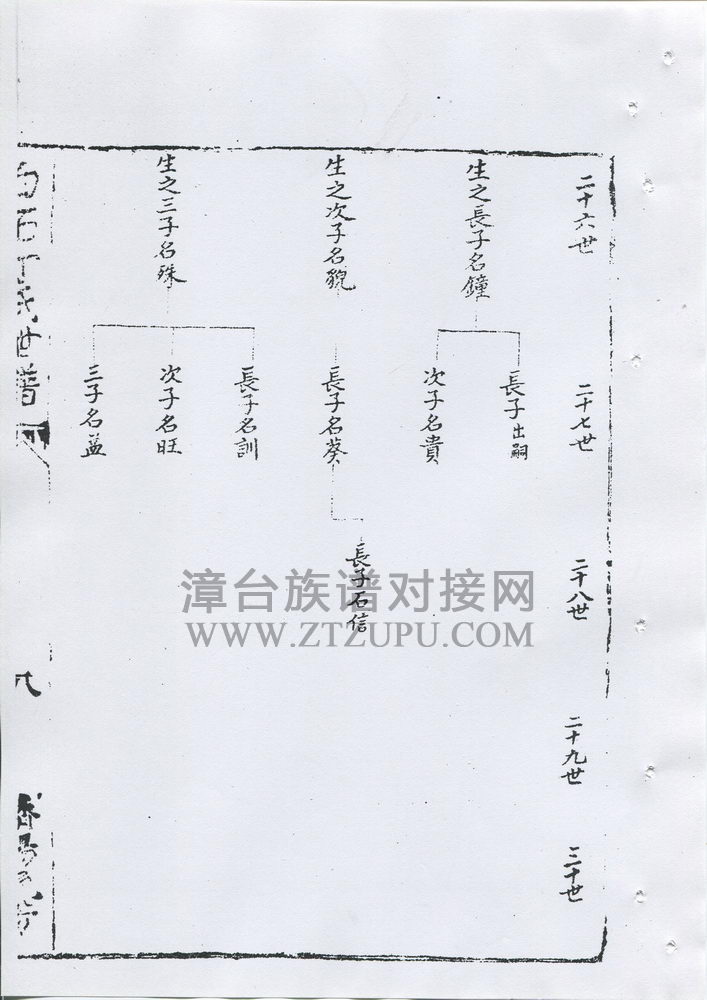 二十六世
二十七世
二十八世
二十九世
三十世
生之長子名鐘
長子出嗣
次子名貴
生之次子名貌
長子名葵
長子名信
生之三子名殊
長子名訓
次子名旺
三子名益
氏世譜
漳台族谱对接网
WWW.ZTZUPU.COM